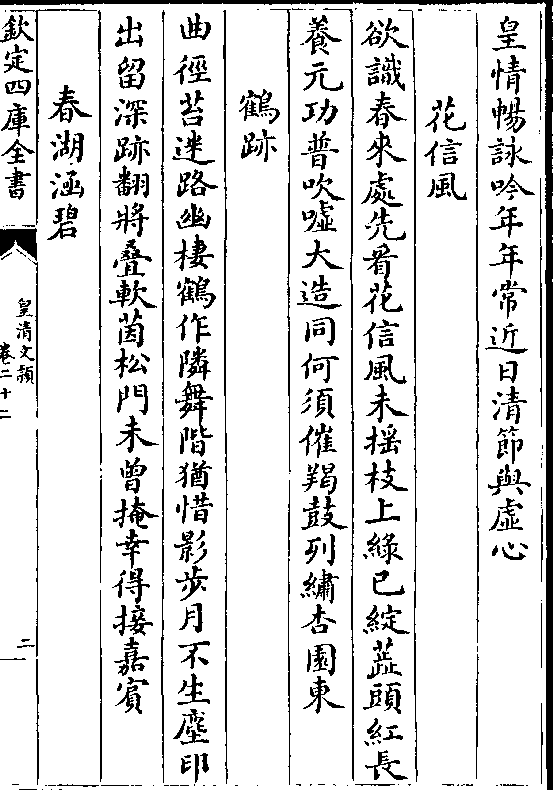 皇情暢詠吟年年常近日清節與虛心
花信風
欲識春來處先看花信風未搖枝上綠已綻蘂頭紅長
養元功普吹噓大造同何須催羯鼓列繡杏園東
鶴跡
曲徑苔迷路幽棲鶴作隣舞階猶惜影步月不生塵印
出留深跡翻將疊軟茵松門未曾掩幸得接嘉賓
春湖涵碧
欽定四庫全書
皇清文穎
卷二十二
二